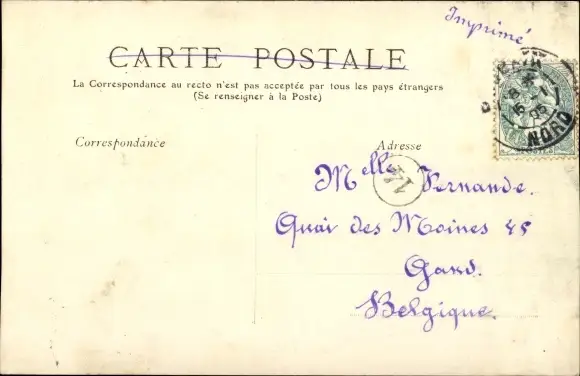 Imprimé
CARTE POSTALE
La Correspondance au recto n'est pas acceptée par tous les pays étrangers
(Se renseigner à la Poste)
Correspondance
Adresse
Melle Fernande.
Quai des Moines 45
Gand.
Belgique.
NORD